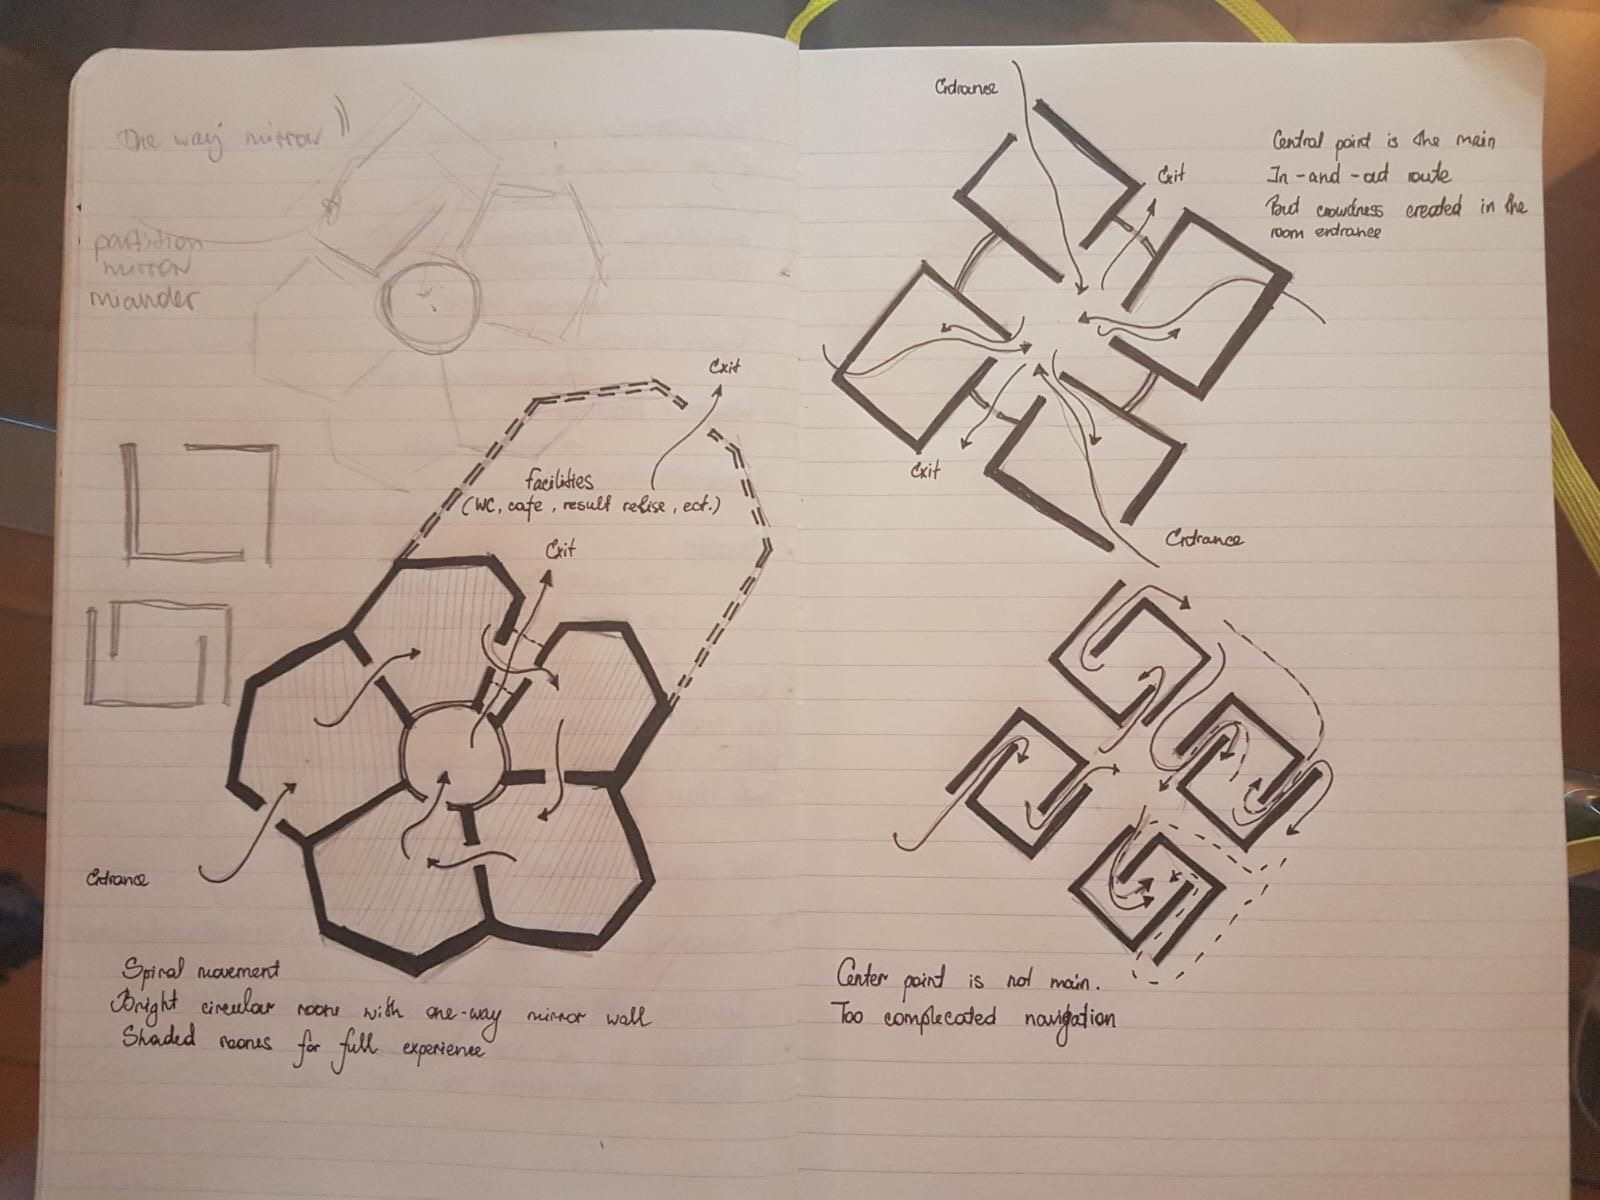 One way mirrow
partistion
mirror
miander
Exit
Facilities
(WC, cafe, result relise, ect.)
Exit
Entrance
Spiral movement
Bright circular room with one-way mirror wall
Shaded rooms for full experience
Entrance
Exit
Central point is the main
In-and-out route
But crowdness created in the
room entrance
Exit
Entrance
Center point is not main.
Too complecated navigation